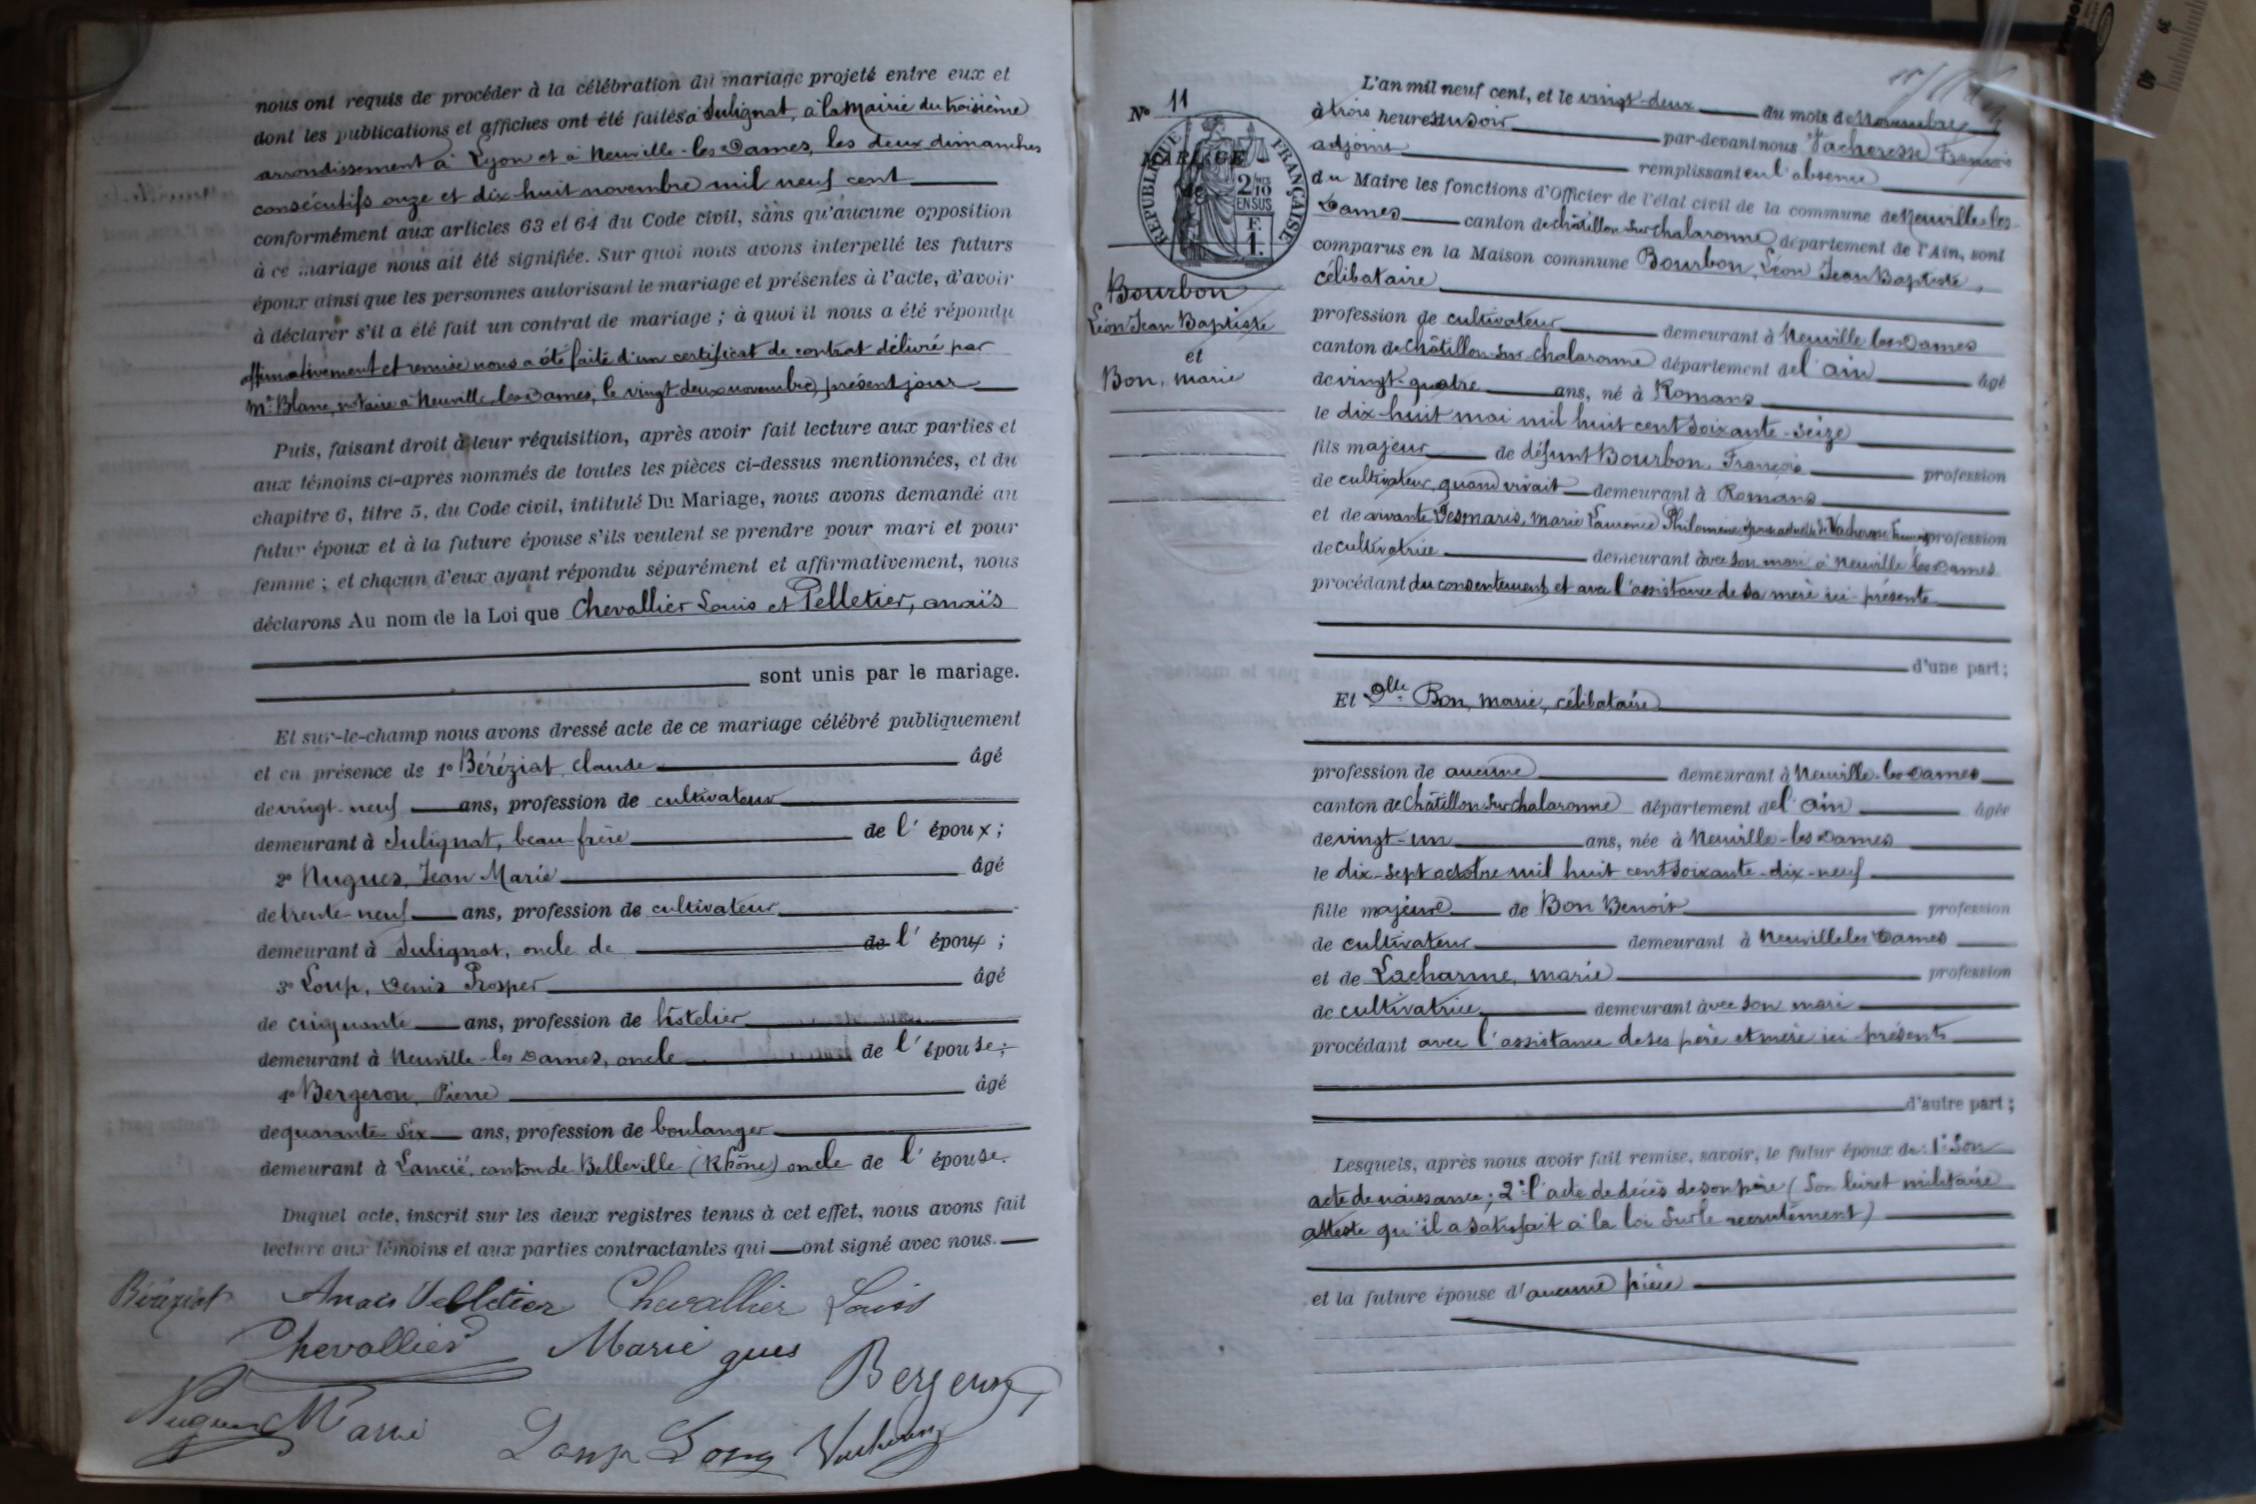 nous ont requis de procéder à la célébration du mariage projeté entre eux et
dont les publications et affiches ont été faites à Sulignat, à la Mairie du troisième
arrondissement à Lyon et à Neuville-les-Dames, les deux dimanches
consécutifs onze et dix-huit novembre mil neuf cent
conformément aux articles 63 et 64 du Code civil, sans qu'aucune opposition
à ce mariage nous ait été signifiée. Sur quoi nous avons interpellé les futurs
époux ainsi que les personnes autorisant le mariage et présentes à l'acte, d'avoir
à déclarer s'il a été fait un contrat de mariage ; à quoi il nous a été répondu
affirmativement et remise nous a été faite d'un certificat de contrat délivré par
Me Blanc, notaire à Neuville-les-Dames, le vingt-deux novembre, présent jour
Puis, faisant droit à leur réquisition, après avoir fait lecture aux parties et
aux témoins ci-après nommés de toutes les pièces ci-dessus mentionnées, et du
chapitre 6, titre 5, du Code civil, intitulé Du Mariage, nous avons demandé au
futur époux et à la future épouse s'ils veulent se prendre pour mari et pour
femme ; et chacun d'eux ayant répondu séparément et affirmativement, nous
déclarons Au nom de la Loi que Chevallier Louis et Pelletier, anaïs
sont unis par le mariage.
Et sur-le-champ nous avons dressé acte de ce mariage célébré publiquement
et en présence de 1° Béréziat, Claude âgé
de vingt-neuf ans, profession de cultivateur
demeurant à Sulignat, beau-frère de l'époux ;
2° Nugues, Jean Marie âgé
de trente-neuf ans, profession de cultivateur
demeurant à Sulignat, oncle de de l'époux ;
3° Loup, Denis Prosper âgé
de cinquante ans, profession de hôtelier
demeurant à Neuville-les-Dames, oncle de l'épouse ;
4° Bergeron, Pierre âgé
de quarante six ans, profession de boulanger
demeurant à Lancié, canton de Belleville (Rhône) oncle de l'épouse.
Duquel acte, inscrit sur les deux registres tenus à cet effet, nous avons fait
lecture aux témoins et aux parties contractantes qui ont signé avec nous.
Béréziat Anaïs Pelletier Chevallier Louis
Chevallier Marie gues Bergeron
Nugues Marie Loup
N° 11
RÉPUBLIQUE FRANÇAISE
MARIAGE
de
2/10 EN SUS
F. 1.
Bourbon
Léon Jean Baptiste
et
Bon, marie
L'an mil neuf cent, et le vingt-deux du mois de Novembre
à trois heures du soir par-devant nous Vacheresse François
adjoint remplissant en l'absence
du Maire les fonctions d'Officier de l'état civil de la commune de Neuville-les-
Dames canton de Châtillon sur Chalaronne département de l'Ain, sont
comparus en la Maison commune Bourbon, Léon Jean Baptiste,
célibataire
profession de cultivateur demeurant à Neuville les Dames
canton de Châtillon-sur Chalaronne département de l'ain âgé
de vingt-quatre ans, né à Romans
le dix-huit mai mil huit cent soixante-seize
fils majeur de défunt Bourbon, François profession
de cultivateur, quand vivait demeurant à Romans
et de vivante Desmaris, Marie Laurence Philomène épouse actuelle de Vacheresse François profession
de cultivatrice demeurant avec son mari à Neuville les Dames
procédant du consentement et avec l'assistance de sa mère ici-présente
d'une part ;
Et Dlle Bon, marie, célibataire
profession de aucune demeurant à Neuville-les-Dames
canton de Châtillon sur Chalaronne département de l'ain âgée
de vingt-un ans, née à Neuville-les-Dames
le dix-sept octobre mil huit cent soixante-dix-neuf
fille majeure de Bon Benoit profession
de cultivateur demeurant à Neuville les Dames
et de Lacharme, marie profession
de cultivatrice demeurant avec son mari
procédant avec l'assistance de ses père et mère ici-présents
d'autre part ;
Lesquels, après nous avoir fait remise, savoir, le futur époux de : 1° Son
acte de naissance ; 2° l'acte de décès de son père (Son livret militaire
atteste qu'il a satisfait à la loi sur le recrutement)
et la future épouse d'aucune pièce
39
40